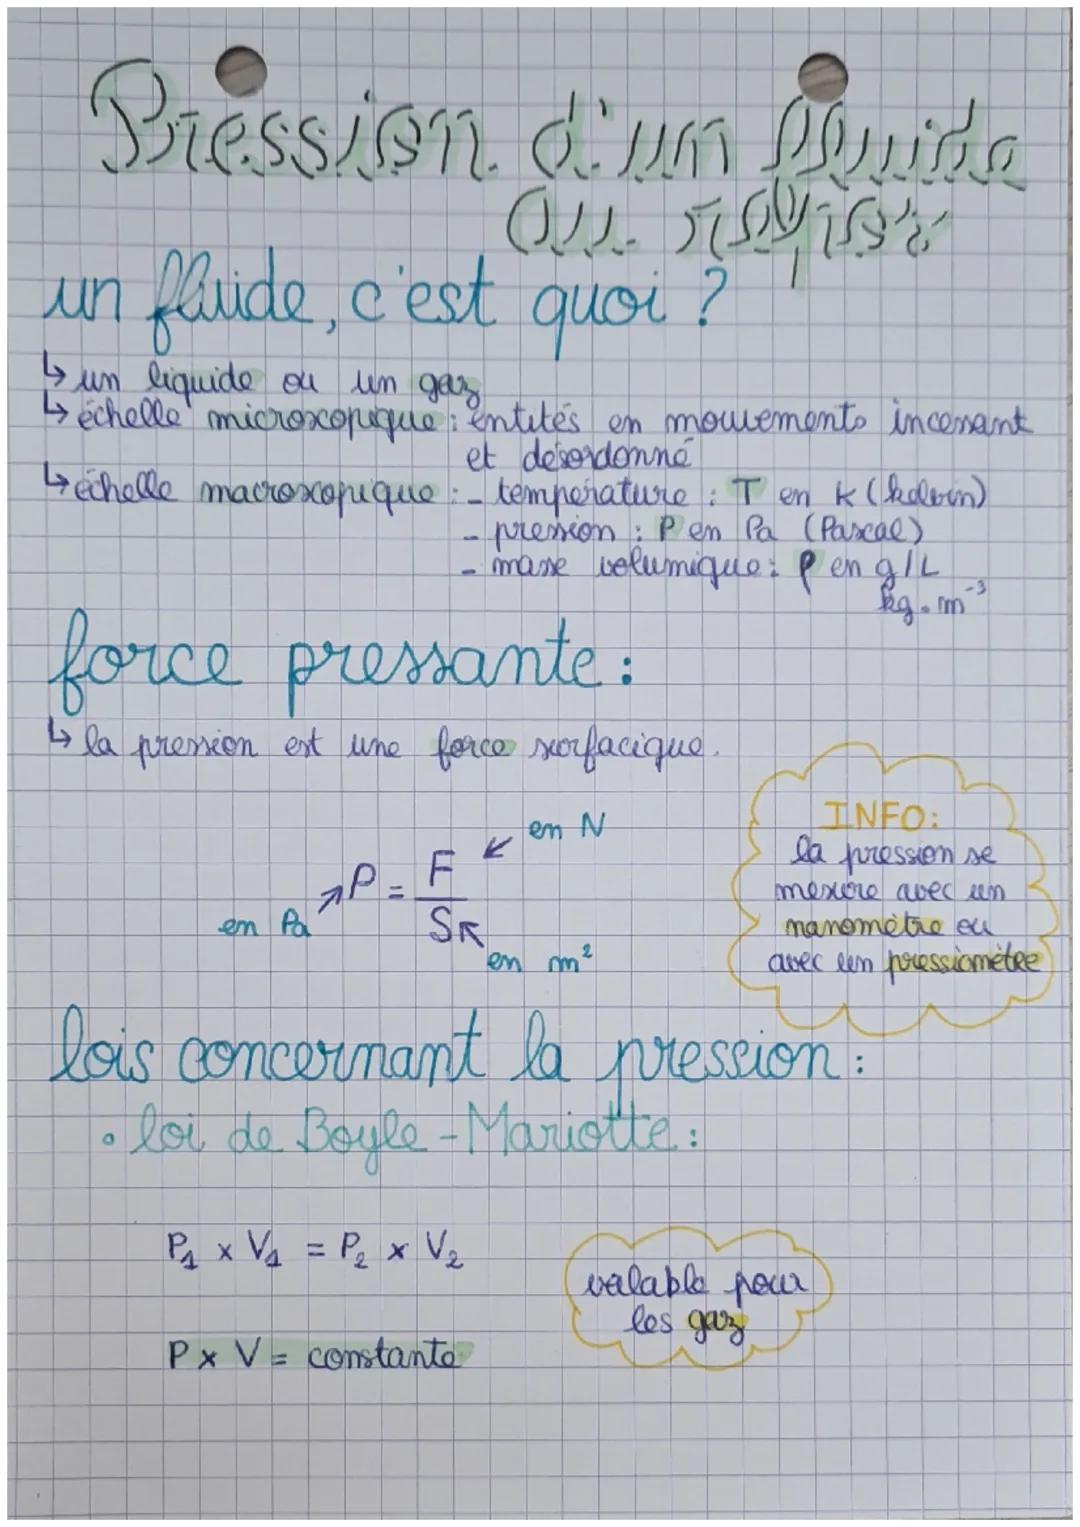 Pression d'un fluide
au repos
un fluide, c'est quoi ?
↳ un liquide ou un gaz
↳ échelle microscopique : entités en mouvements incessant
et désordonné
↳ échelle macroscopique : - température : T en K (kelvin)
- pression : P en Pa (Pascal)
- masse volumique : ρ en g/L
kg.m⁻³
force pressante :
↳ la pression est une force surfacique.
INFO :
la pression se
mesure avec un
manomètre ou
avec un pressiomètre
en N
P = F/S
en Pa
en m²
lois concernant la pression :
• loi de Boyle-Mariotte :
P₁ x V₁ = P₂ x V₂
valable pour
les gaz
P x V = constante